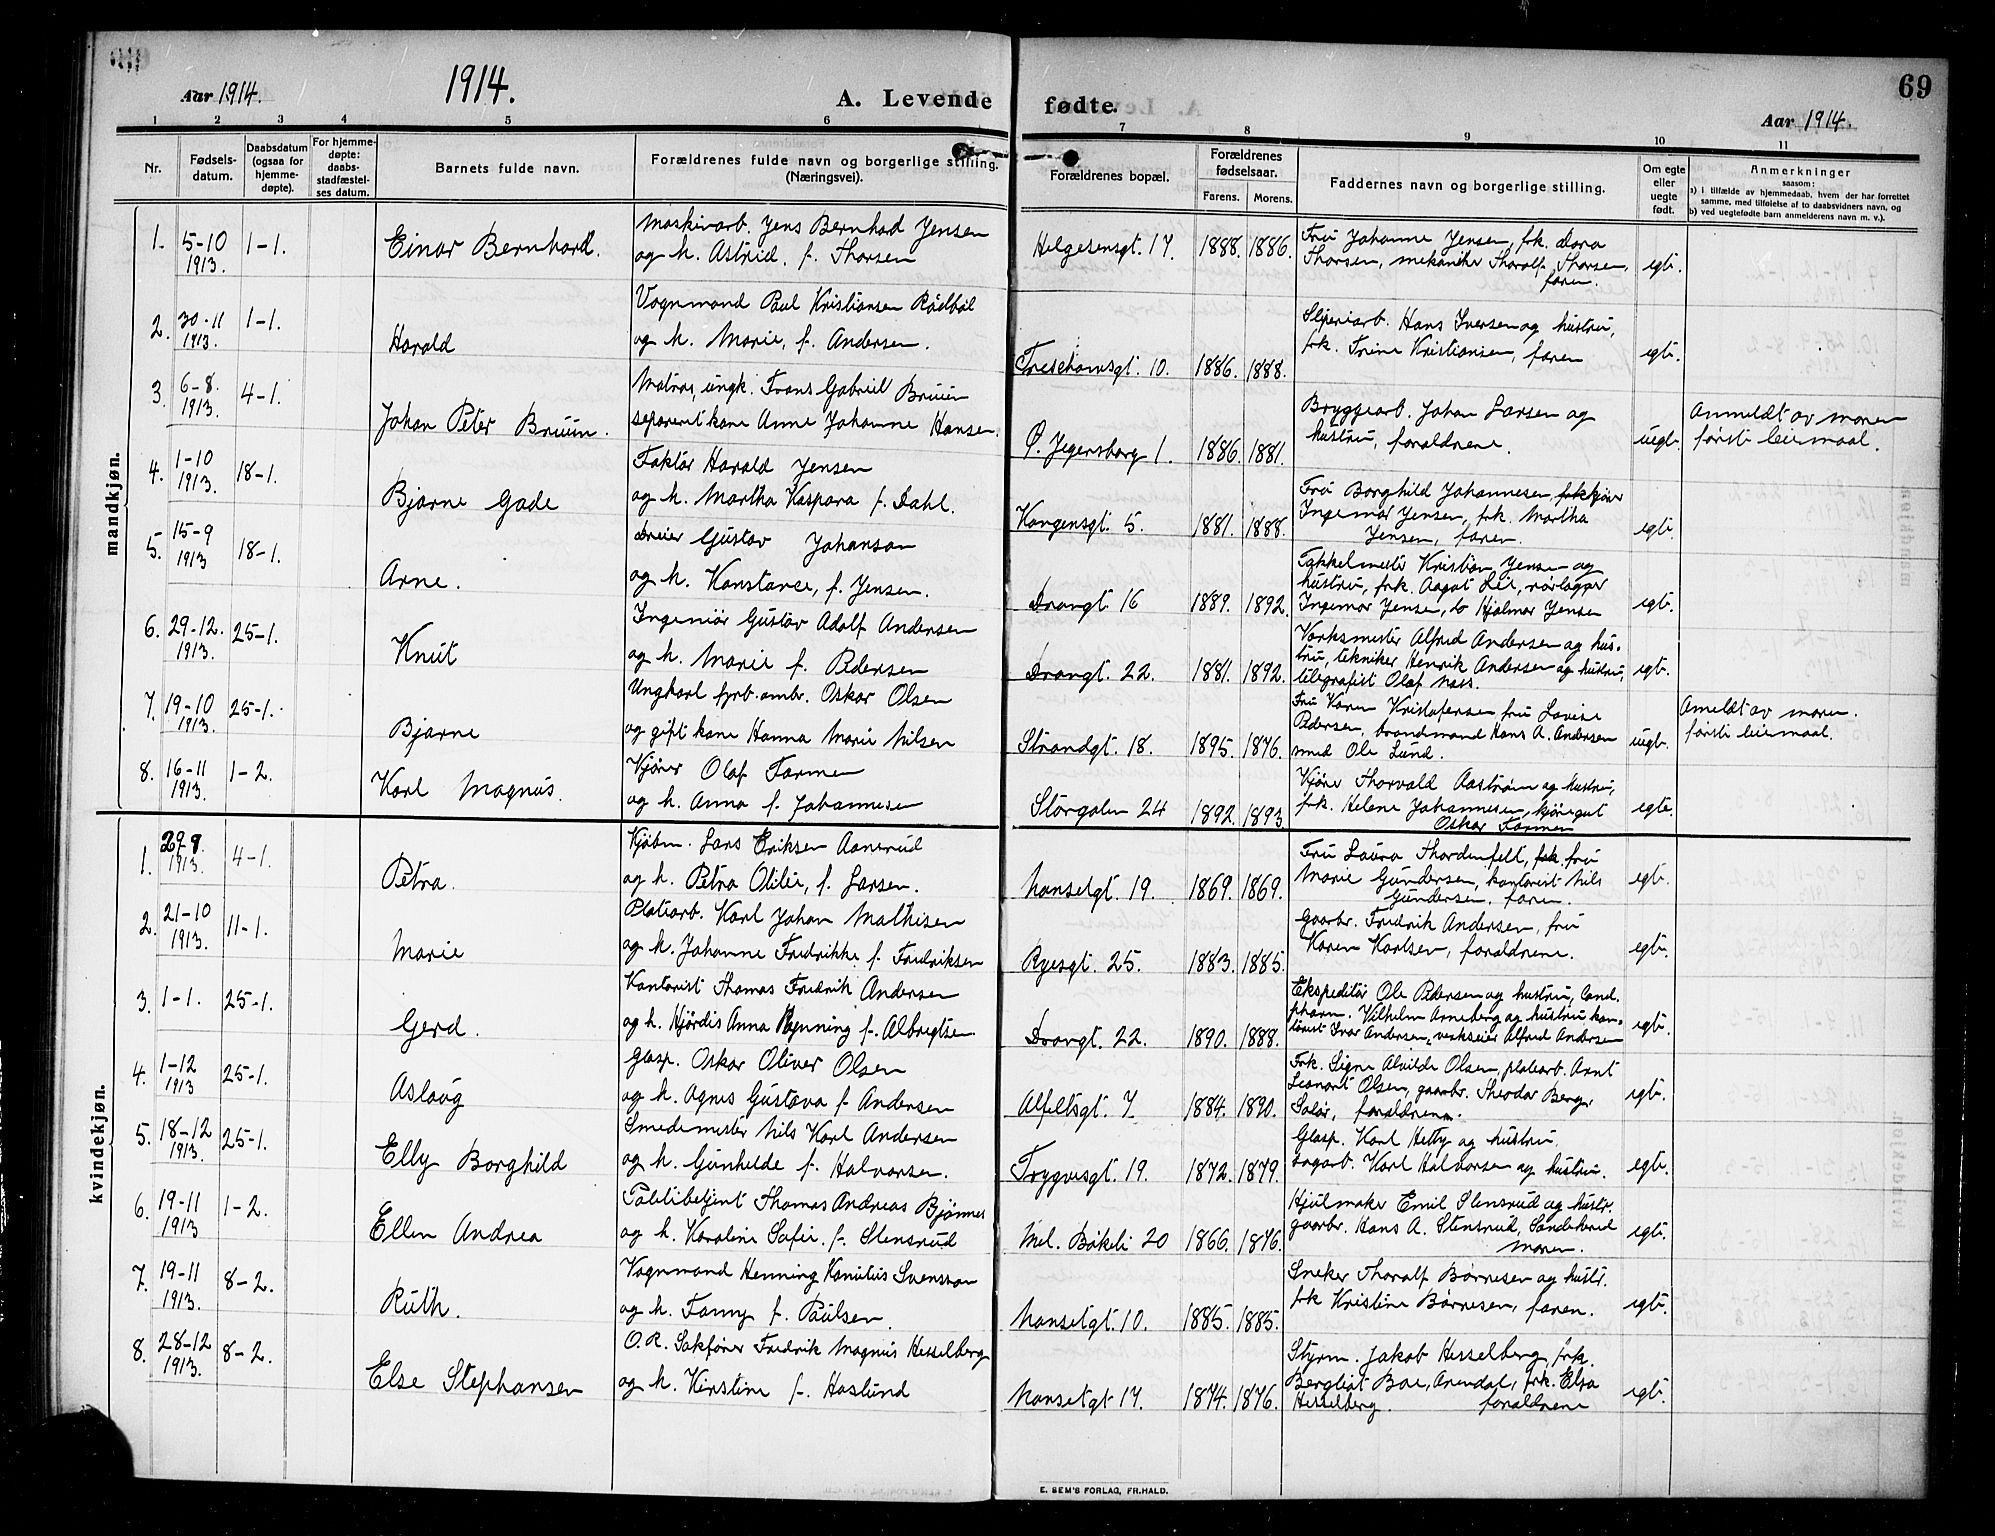 69
Aar 1914.
1914.
A. Levende fødte.
Aar 1914.
1 2 3 4 5 6 7 8 9 10 11
Nr.
Fødsels-
datum.
Daabsdatum
(ogsaa for
hjemme-
døpte).
For hjemme-
døpte:
daabs-
stadfæstel-
ses datum.
Barnets fulde navn.
Forældrenes fulde navn og borgerlige stilling.
(Næringsvei).
Forældrenes bopæl.
Forældrenes
fødselsaar.
Farens. Morens.
Faddernes navn og borgerlige stilling.
Om egte
eller
uegte
født.
Anmerkninger
saasom:
a) i tilfælde av hjemmedaab, hvem der har forrettet
samme, med tilføielse af to daabsvidners navn, og
b) ved uegtefødte barn anmelderens navn m. v.).
mandkjøn.
1. 5-10 1913. 1-1. Einar Bernhard.
Maskinarb. Jens Bernhard Jensen
og h. Astrid, f. Thorsen
Helgesensgt. 17. 1888. 1886.
Fru Johanne Jensen, frk. Dora
Thorsen, mekaniker Thoralf Thorsen,
faren.
egte.
2. 30-11 1913. 1-1. Harald
Vognmand Paul Kristiansen Rødbøl
og h. Marie, f. Andersen.
Treschowsgt. 10. 1886. 1888.
Sliperiarb. Hans Iversen og hustru,
frk. Trine Kristiansen, faren
egte.
3. 6-8. 1913. 4-1. Johan Peter Bruun.
Matros, ungk. Frans Gabriel Bruun
separert kone Anne Johanne Hansen.
Ø. Jegersborg 1. 1886. 1881.
Bryggearb. Johan Larsen og
hustru, forældrene.
uegte.
Anmeldt av moren
første leiermaal.
4. 1-10 1913. 18-1. Bjarne Gade
Faktor Harald Jensen
og h. Martha Kaspara f. Dahl.
Kongensgt. 5. 1881. 1888.
Fru Borghild Johannesen, kjører
Ingemar Jensen, frk. Martha
Jensen, faren.
egte.
5. 15-9 1913 18-1. Arne.
Dreier Gustav Johanson
og h. Konstance, f. Jensen.
Drongt. 16 1889. 1892.
Takkelmester Kristian Jensen og
hustru, frk. Aagot Lie, rørlægger
Ingemar Jensen, do Hjalmar Jensen
egte.
6. 29-12. 1913. 25-1. Knut
Ingeniør Gustav Adolf Andersen
og h. Marie f. Pedersen
Drongt. 22. 1881. 1892.
Verksmester Alfred Andersen og hus-
tru, tekniker Henrik Andersen og hustru,
telegrafist Olaf Næss.
egte.
7. 19-10 1913. 25-1. Bjarne
Ungkarl fyrb. ombr. Oskar Olsen
og gift kone Hanna Marie Nilsen
Strandgt. 18. 1895. 1876.
Fru Karen Kristofersen fru Lovise
Pedersen, brandmand Hans A. Andersen
Ole Lund.
uegte.
Ameldt av moren.
første leiermaal.
8. 16-11 1913. 1-2. Karl Magnus.
Kjører Olaf Farmen
og h. Anna f. Johannesen
Storgaten 24 1892. 1893.
Kjører Thorvald Aastrøm og hustru,
frk. Helene Johannesen, kjøregut
Oskar Farmen
egte.
kvindekjøn.
1. 29-9. 1913. 4-1. Petra.
Kjøbm. Lars Eriksen Aanerud
og h. Petra Otilie, f. Larsen.
Nansetgt. 19. 1869. 1869.
Fru Laura Thordenfelt, fru
Marie Gundersen, kontorist Nils
Gundersen, faren.
egte.
2. 21-10 1913. 11-1. Marie
Platearb. Karl Johan Mathisen
og h. Johanne Fredrikke f. Fredriksen
Ryesgt. 25. 1883. 1885.
Gaarbr. Fredrik Andersen, fru
Karen Karlsen, forældrene.
egte.
3. 1-1. 25-1. Gerd.
Kontorist Thomas Fredrik Andersen
og h. Hjørdis Anna Rynning f. Albregtsen
Drongt. 22. 1890. 1888.
Ekspeditør Ole Pedersen og hustru, Cand.
pharm. Vilhelm Arneberg og hustru, kon-
torist Ivar Andersen, verkseier Alfred Andersen
egte.
4. 1-12 1913 25-1. Aslaug
Glasp. Oskar Oliver Olsen
og h. Agnes Gustava f. Andersen
Alfeltsgt. 7 1884. 1890.
Frk. Signe Alvilde Olsen, platearb. Arnt
Leonart Olsen, gaarbr. Theodor Berg,
Solør, forældrene.
egte.
5. 18-12 1913. 25-1. Elly Borghild
Smedemester Nils Karl Andersen
og h. Gunhilde f. Halvorsen.
Trygvesgt. 19. 1872. 1879.
Glasp. Karl Hetty og hustru.
Sagarb. Karl Halvorsen og hustru.
egte.
6. 19-11 1913 1-2. Ellen Andrea
Politibetjent Thomas Andreas Bjønnes
og h. Karoline Sofie. f. Stensrud
Mel. Bøkeli 20 1866. 1876.
Hjulmaker Emil Stensrud og hustr.
gaarbr. Hans A. Stensrud, Sandehered
moren.
egte.
7. 19-11 1913. 8-2. Ruth.
Vognmand Henning Kanutus Svensson
og h. Fanny f. Paulsen.
Nansetgt. 10. 1885. 1885.
Sneker Thoralf Børresen og hustr.
frk Kristine Børresen, faren.
egte.
8. 28-12 1913. 8-2. Else Stephansen
O.R. Sakfører Fredrik Magnus Hesselberg
og h. Kirstine f. Haslund
Nansetgt 17. 1874. 1876.
Styrm. Jakob Hesselberg, frk.
Bergliot Boe, Arendal, frk. Elsa
Hesselberg. forældrene
egte.
E. SEM'S FORLAG, FR.HALD.